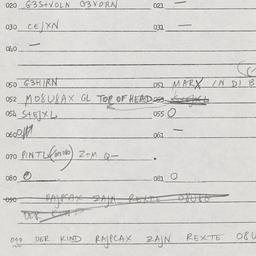 020 G3S+VOLN G3VORN 021 —
030 CEJXN 031 —
040 —
050 G3HIRN 051 MARX IN DI B
052 MO8U8AX GL TOP OF HEAD 053
054 S+EJXL 055 O
060 061 —
070 PINTL Z+M Q—
080 081 O
090 RAJPCAX ZAJN REXTE O8U8O
DER
090 DER KIND RAJPCAX ZAJN REXTE O8U